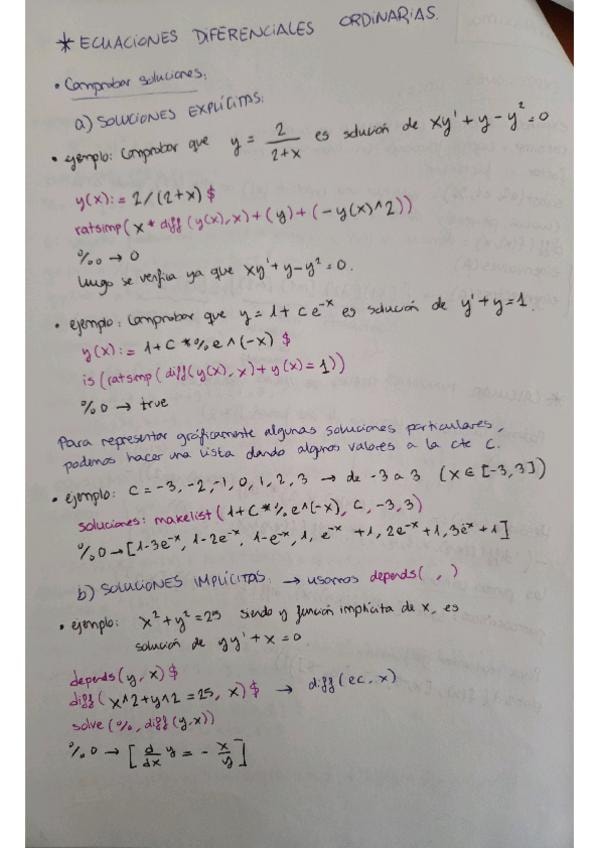 * ECUACIONES DIFERENCIALES ORDINARIAS.
• Comprobar soluciones:
a) SOLUCIONES EXPLÍCITAS:
• ejemplo: Comprobar que y = 2/(2+x) es solución de xy' + y - y² = 0
y(x):= 2/(2+x)$
ratsimp(x * diff(y(x),x)+(y)+(-y(x)^2))
%o → 0
luego se verifica ya que xy' + y - y² = 0.
• ejemplo: Comprobar que y = 1 + ce⁻ˣ es solución de y' + y = 1.
y(x):= 1+C*%e^(-x) $
is(ratsimp(diff(y(x),x)+y(x)=1))
%o → true
Para representar gráficamente algunas soluciones particulares,
podemos hacer una lista dando algunos valores a la cte C.
• ejemplo: C = -3, -2, -1, 0, 1, 2, 3 → de -3 a 3 (x ∈ [-3,3])
soluciones: makelist(1+C*%e^(-x), C, -3, 3)
%o → [1-3e⁻ˣ, 1-2e⁻ˣ, 1-e⁻ˣ, 1, e⁻ˣ+1, 2e⁻ˣ+1, 3e⁻ˣ+1]
b) SOLUCIONES IMPLÍCITAS: → usamos depends( , )
• ejemplo: x² + y² = 25 siendo y función implícita de x, es
solución de yy' + x = 0.
depends(y, x)$
diff(x^2+y^2 = 25, x)$ → diff(ec, x)
solve(%, diff(y,x))
%o → [d/dx y = - x/y]